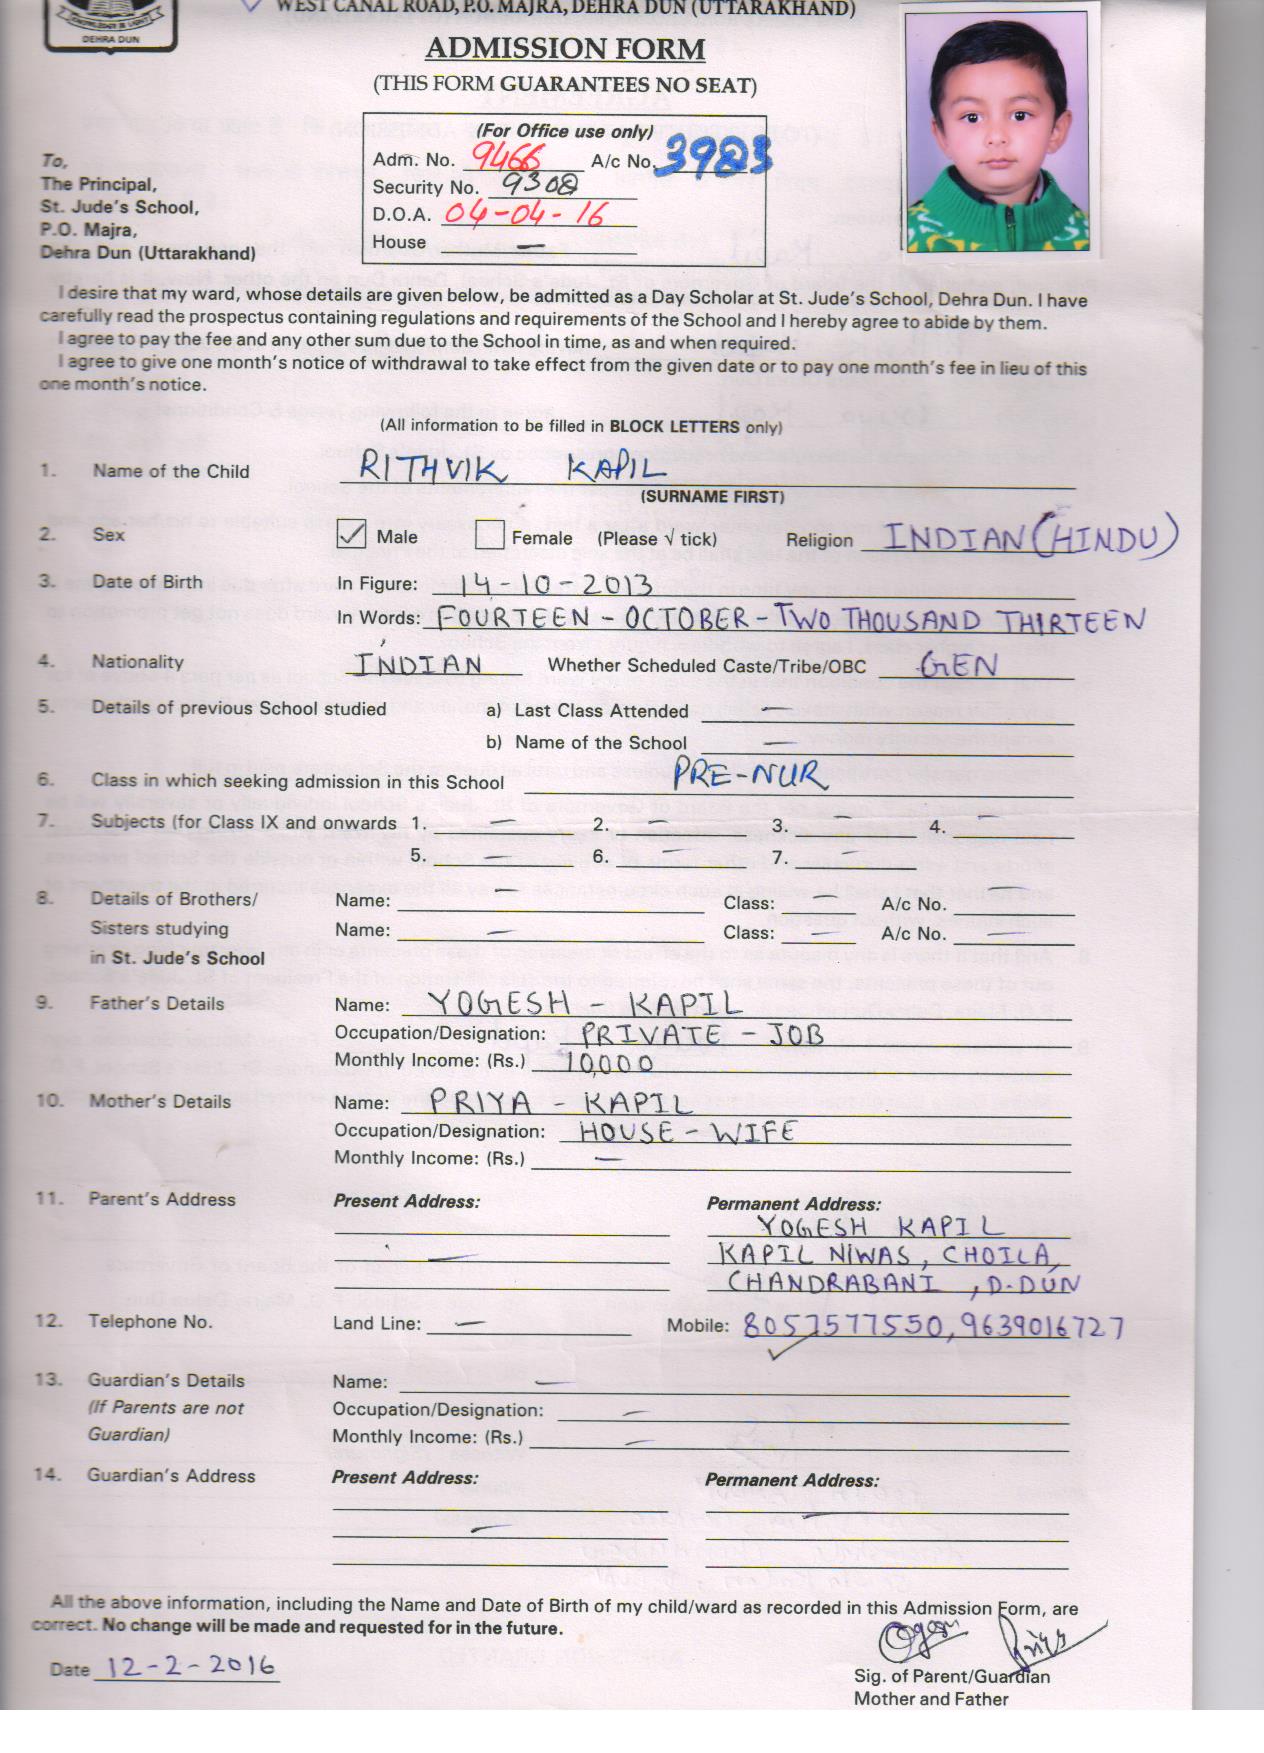 WEST CANAL ROAD, P.O. MAJRA, DEHRA DUN (UTTARAKHAND)
DEHRA DUN
ADMISSION FORM
(THIS FORM GUARANTEES NO SEAT)
(For Office use only)
Adm. No. 9466 A/c No. 3983
Security No. 9308
D.O.A. 04-04-16
House —
To,
The Principal,
St. Jude's School,
P.O. Majra,
Dehra Dun (Uttarakhand)
I desire that my ward, whose details are given below, be admitted as a Day Scholar at St. Jude's School, Dehra Dun. I have
carefully read the prospectus containing regulations and requirements of the School and I hereby agree to abide by them.
I agree to pay the fee and any other sum due to the School in time, as and when required.
I agree to give one month's notice of withdrawal to take effect from the given date or to pay one month's fee in lieu of this
one month's notice.
(All information to be filled in BLOCK LETTERS only)
1. Name of the Child RITHVIK KAPIL
(SURNAME FIRST)
2. Sex ✓ Male Female (Please √ tick) Religion INDIAN (HINDU)
3. Date of Birth In Figure: 14-10-2013
In Words: FOURTEEN - OCTOBER - TWO THOUSAND THIRTEEN
4. Nationality INDIAN Whether Scheduled Caste/Tribe/OBC GEN
5. Details of previous School studied a) Last Class Attended —
b) Name of the School —
6. Class in which seeking admission in this School PRE-NUR
7. Subjects (for Class IX and onwards 1. — 2. — 3. — 4. —
5. — 6. — 7. —
8. Details of Brothers/ Name: — Class: — A/c No. —
Sisters studying Name: — Class: — A/c No. —
in St. Jude's School
9. Father's Details Name: YOGESH - KAPIL
Occupation/Designation: PRIVATE - JOB
Monthly Income: (Rs.) 10,000
10. Mother's Details Name: PRIYA - KAPIL
Occupation/Designation: HOUSE - WIFE
Monthly Income: (Rs.) —
11. Parent's Address Present Address: Permanent Address:
YOGESH KAPIL
— KAPIL NIWAS, CHOILA,
CHANDRABANI, D-DUN
12. Telephone No. Land Line: — Mobile: 8057577550, 9639016727
13. Guardian's Details Name: —
(If Parents are not Occupation/Designation: —
Guardian) Monthly Income: (Rs.) —
14. Guardian's Address Present Address: Permanent Address:
— —
All the above information, including the Name and Date of Birth of my child/ward as recorded in this Admission Form, are
correct. No change will be made and requested for in the future.
Date 12-2-2016
Sig. of Parent/Guardian
Mother and Father